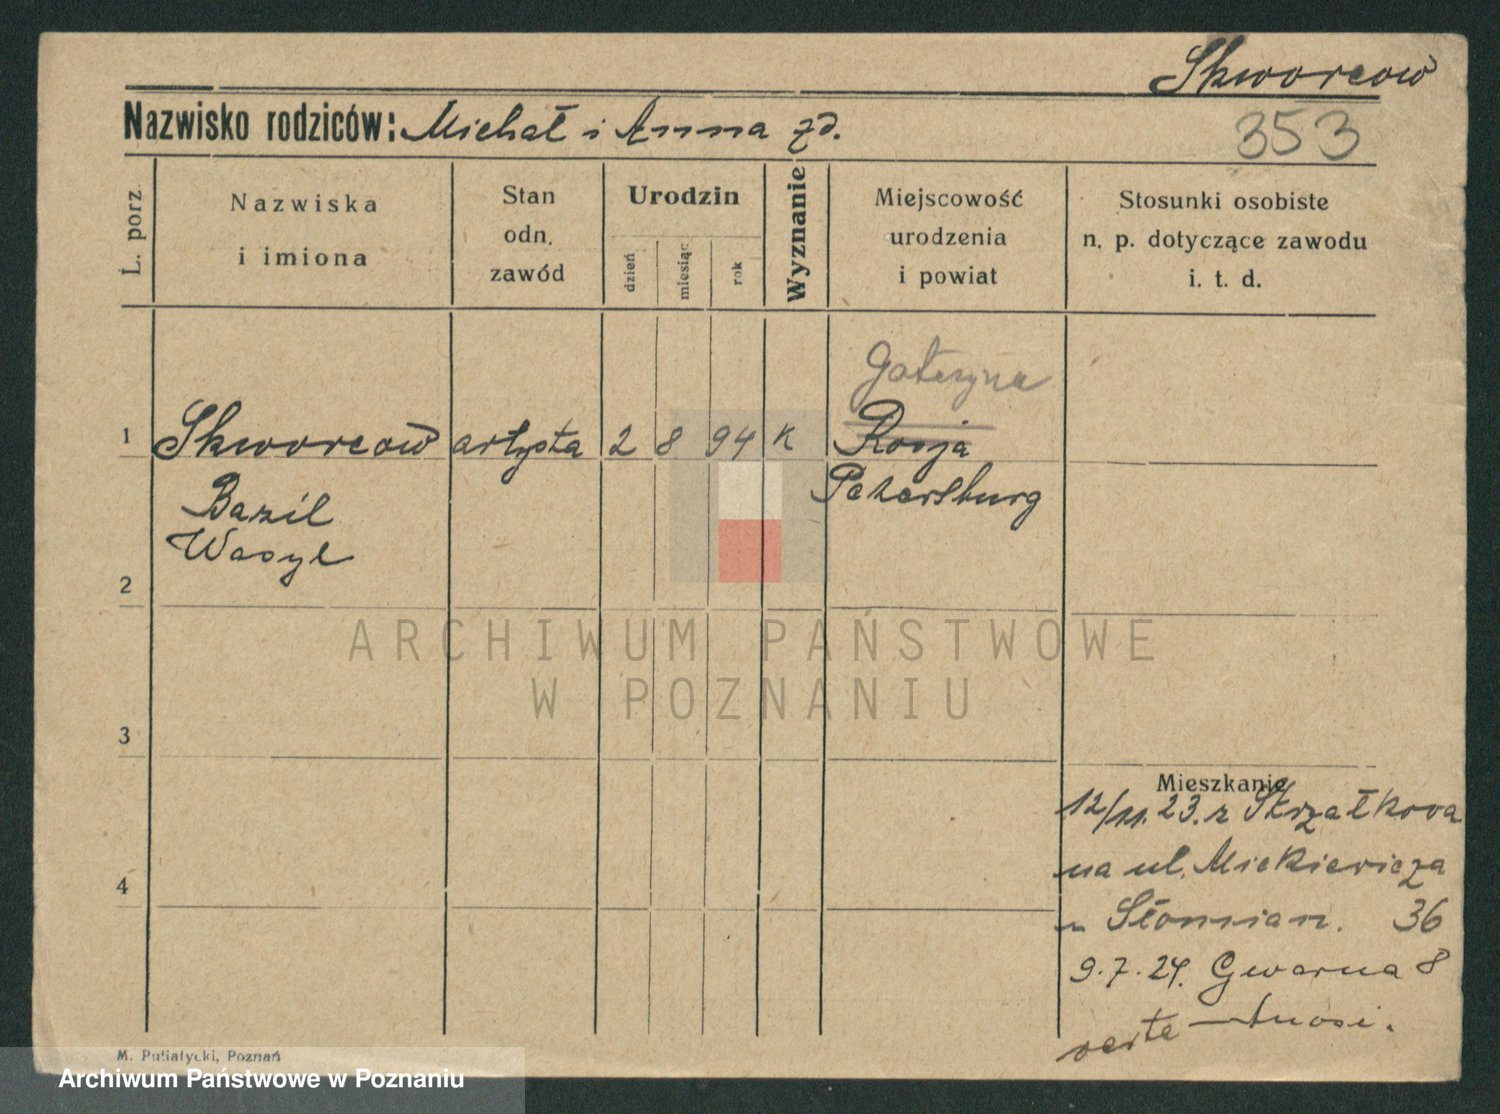 Skworcow
Nazwisko rodziców: Michał i Anna zd.
353
L. porz
Nazwiska
i imiona
Stan
odn.
zawód
Urodzin
dzień
miesiąc
rok
Wyznanie
Miejscowość
urodzenia
i powiat
Stosunki osobiste
n. p. dotyczące zawodu
i. t. d.
Gatczyna
1 Skworcow artysta 2 8 94 K Rosja
Petersburg
Bazil
Wasyl
2
ARCHIWUM PAŃSTWOWE
W POZNANIU
3
Mieszkanie
12/11.23. z Strzałkowa
na ul. Mickiewicza
u Słomian. 36
4
9.7.24. Gwarna 8
verte
M. Putiatycki, Poznań
Archiwum Państwowe w Poznaniu